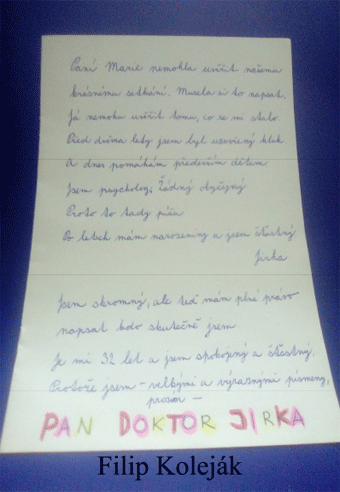 Paní Marie nemohla uvěřit našemu
krásnému setkání. Musela si to napsat.
Já nemohu uvěřit tomu, co se mi stalo.
Před dvěma lety jsem byl uzavřený kluk
A dnes pomáhám především dětem
Jsem psycholog; Žádný obyčejný
Proto to tady píšu
Po letech mám narozeniny a jsem šťastný
Jirka
Jsem skromný, ale teď mám plné právo
napsat kdo skutečně jsem
Je mi 32 let a jsem spokojený a šťastný.
Protože jsem - velkými a výraznými písmeny,
prosím -
PAN DOKTOR JIRKA
Filip Koleják